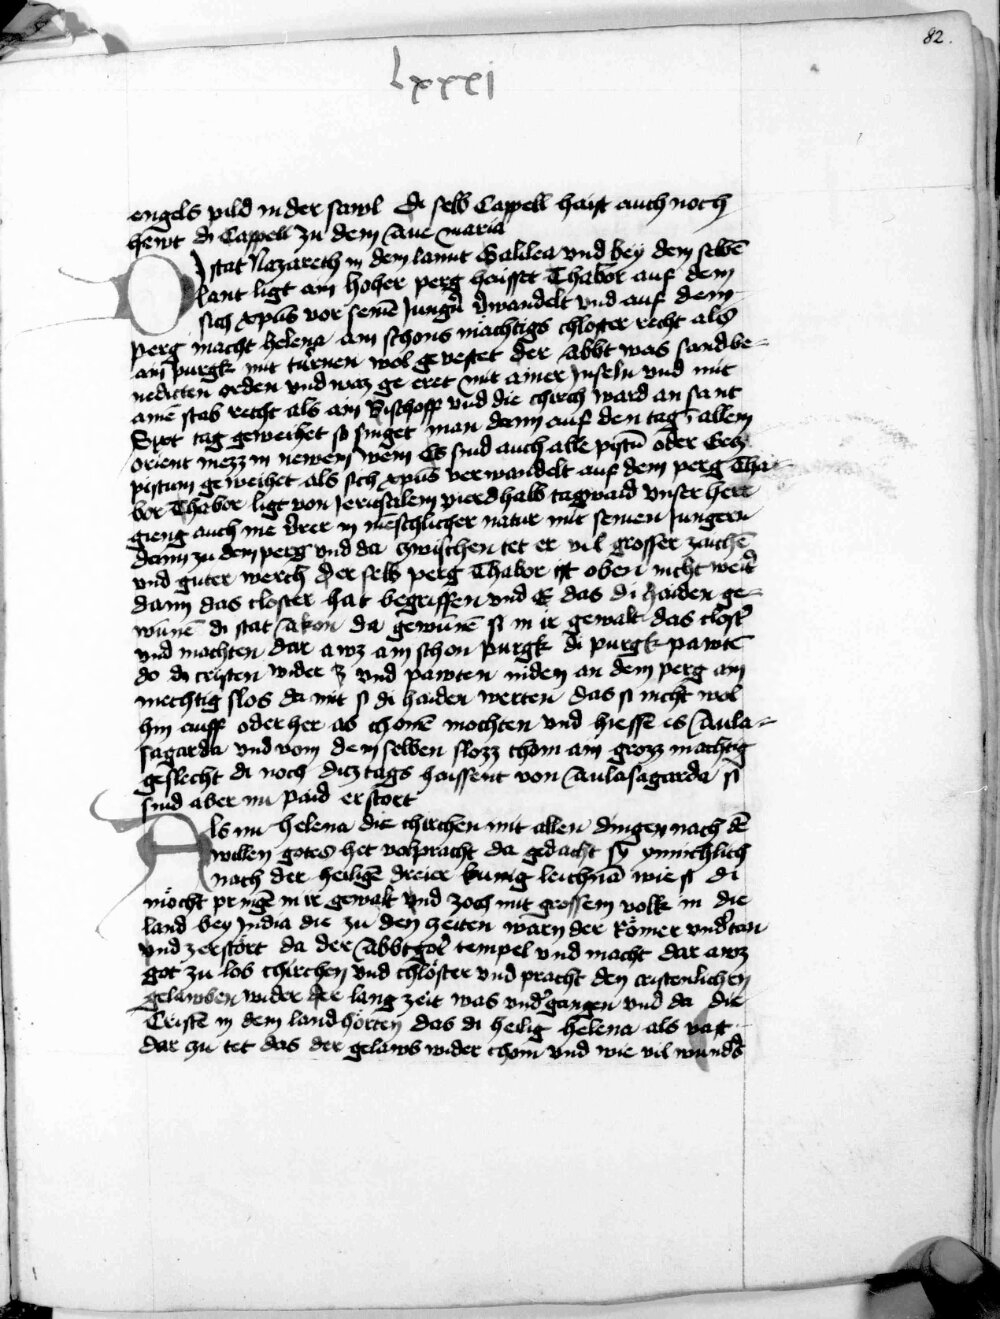 82.
Lxxxi
engels pild in der sawl Di selb Cappell haist auch noch
hewt di Cappell zu dem Aue maria
DJ stat Nazareth in dem lannt Galilea vnd bey dem selbē
lant ligt ain hoher perg haisset Thabor auf dem
sich xpūs vor seinē Jungrn̄ v̄wandelt vnd auf dem
perg macht helena ain schons machtigs chloster recht als
ain purgk mit türnen wol geuestet der Abbt was sand be-
nedicten orden vnd waz ge eret mit ainer Jnfeln vnd mit
ainē stab recht als ain Bischoff vnd die chirch ward an sant
tag geweihet so singet man dann auf den tag allem
orient mezz in newem wein Es sind auch alle oder
geweihet als sich xpūs verwandelt auf dem perg Tha-
bor Thabor ligt von Jerusalem vierdhalb tagwaid vnser herr
gieng auch nie v̄rer in meschlicher natur mit seinen Jungern
dann zu dem perg vnd da zwischen tet er vil grosser zaichē
vnd guter werch Der selb perg Thabor ist oben nicht weitr̄
dann das closter hat begriffen vnd E das di haiden ge-
wūnē di stat Akon da gewūnē si in ir gewalt das clostr̄
vnd machten dar awz ain schon purgk di purgk pawtē
do di cristen wider vnd pawten niden an dem perg ain
mechtig slos da mit si di haiden werten das si nicht wol
hin auff oder her ab chomē mochten vnd hiessē es Aula-
sagarda vnd vom dem selben slozz chom ain grozz machtig
geslecht di noch ditz tags haissent von Aulasagarda si
sind aber nu paid erstort
Als nu helena die chirchen mit allen dingen nach dē
willen gotes het volpracht da gedacht sy ynnichlich
nach der heiligē dreier kunig leichnā wie si di
möcht pringē in ir gewalt vnd zoch mit grossem volk in die
land bey Jndia die zu den zeiten warn der Römer vndr̄tan
vnd zerstört da der Abbtgotr̄ tempel vnd macht dar awz
got zu lob chirchen vnd chlöster vnd pracht den cristenlichen
gelawben wider der lang zeit was vndr̄gangen vnd da die
Cristē in dem land hörten das di heilig helena als vast
dar zu tet das der gelawb wider chom vnd wie vil wundr̄s